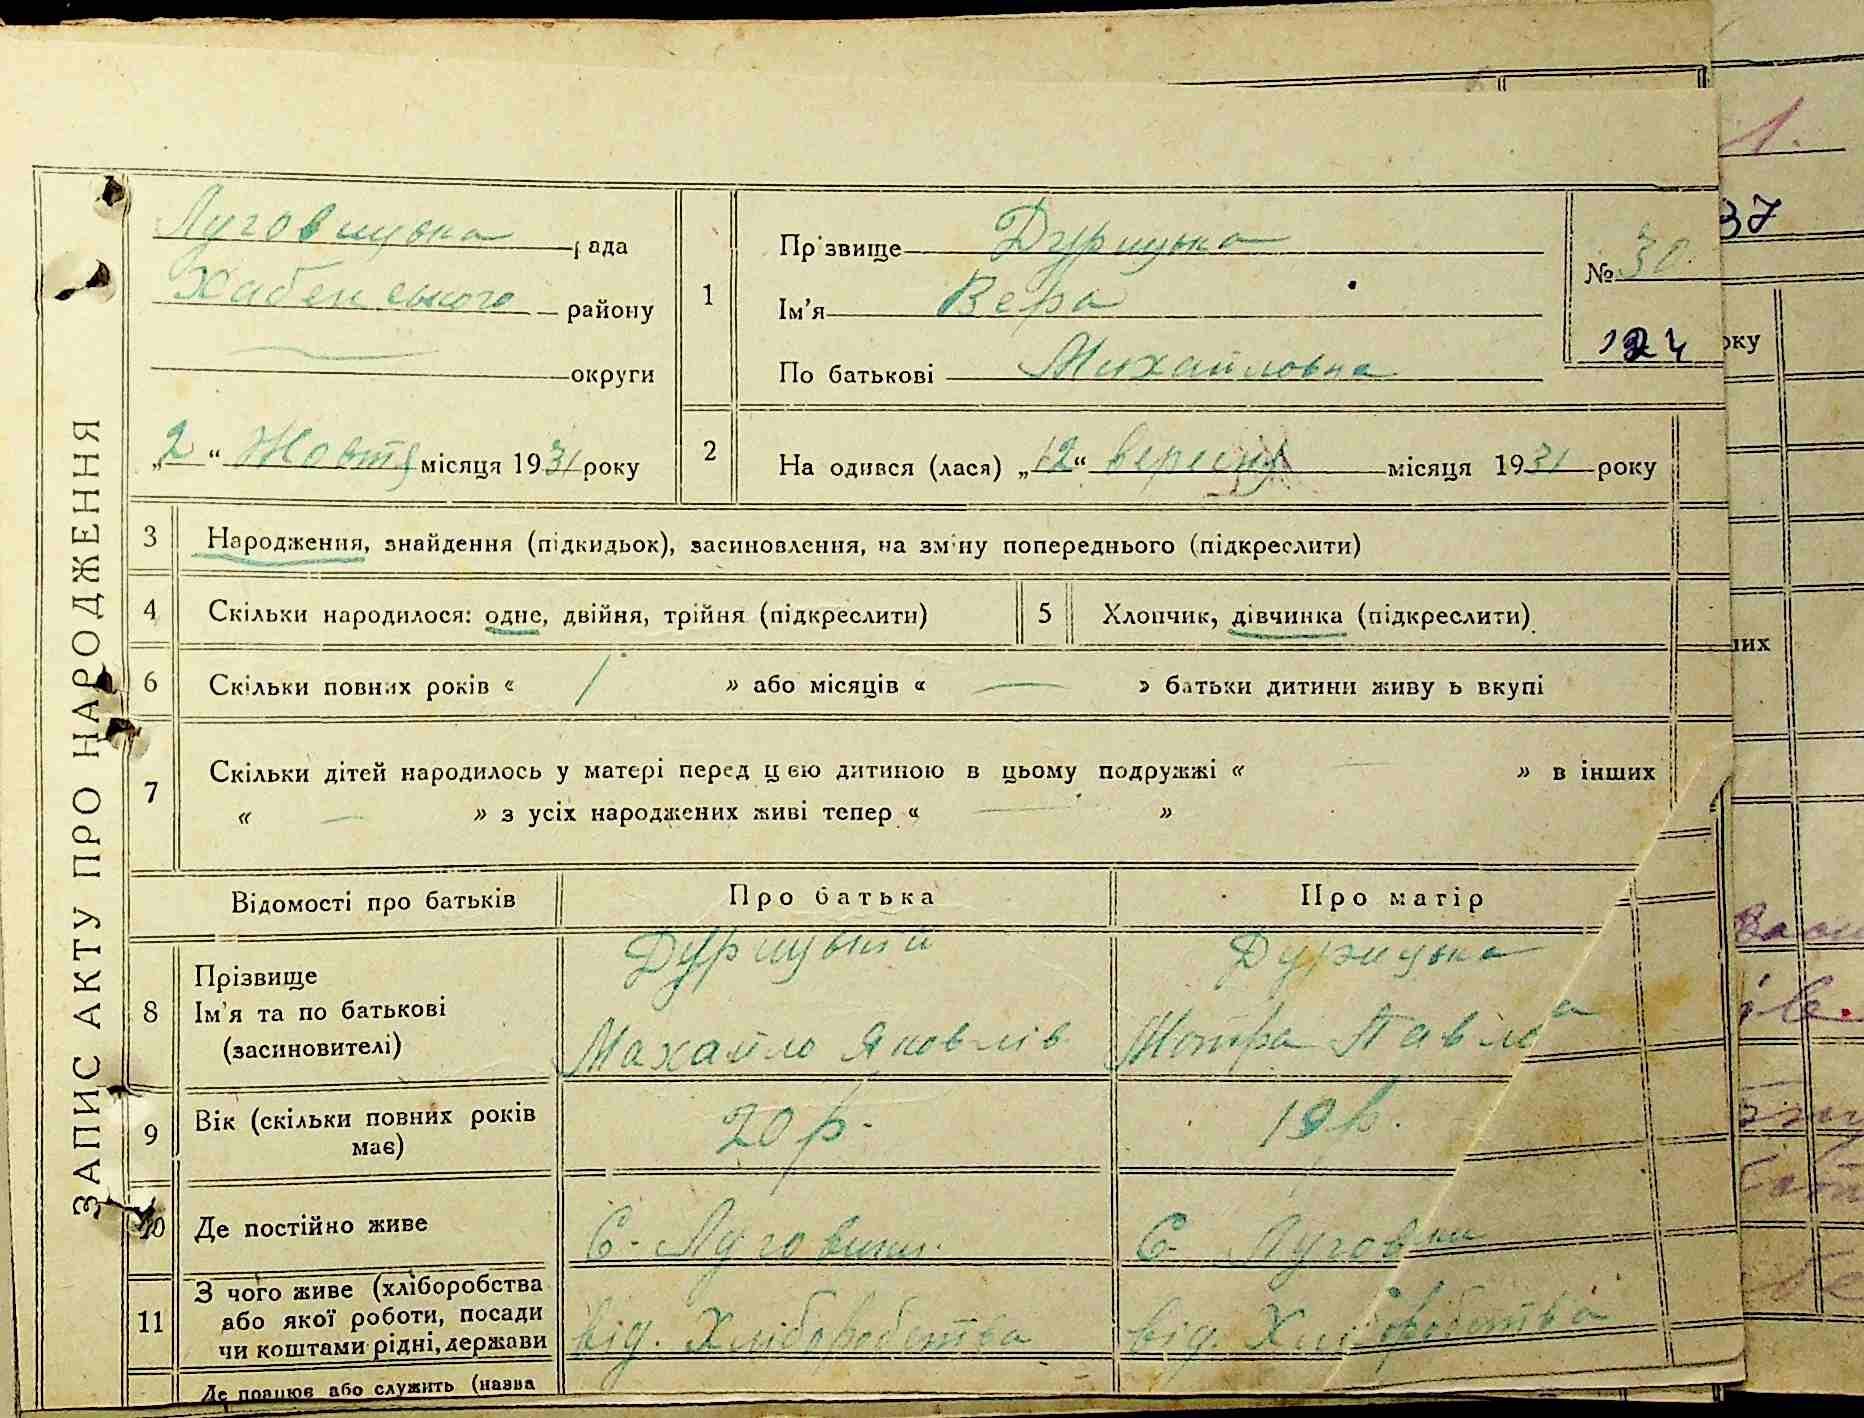 ЗАПИС АКТУ ПРО НАРОДЖЕННЯ
Луговицька рада
Хабенського району
округи
„2“ Жовтя місяця 1931 року
1
Прізвище Дурицька
Ім'я Вера
По батькові Михайловна
№ 30
124
2
На одився (лася) „12“ вересня місяця 1931 року
3 Народження, знайдення (підкидьок), засиновлення, на зміну попереднього (підкреслити)
4 Скільки народилося: одне, двійня, трійня (підкреслити)
5 Хлопчик, дівчинка (підкреслити)
6 Скільки повних років « 1 » або місяців « — » батьки дитини живу ь вкупі
7 Скільки дітей народилось у матері перед цією дитиною в цьому подружжі « — » в інших
« — » з усіх народжених живі тепер « — »
Відомості про батьків
Про батька
Про матір
8 Прізвище
Ім'я та по батькові
(засиновителі)
Дурицький
Махайло Яковлів
Дурицька
Мотра Павло а
9 Вік (скільки повних років
має)
20 р.
19 р.
10 Де постійно живе
С. Луговики.
С. Луговики
11 З чого живе (хліборобства
або якої роботи, посади
чи коштами рідні, держави
від. Хліборобства
від. Хліборобства
Де працює або служить (назва
37
оку
них